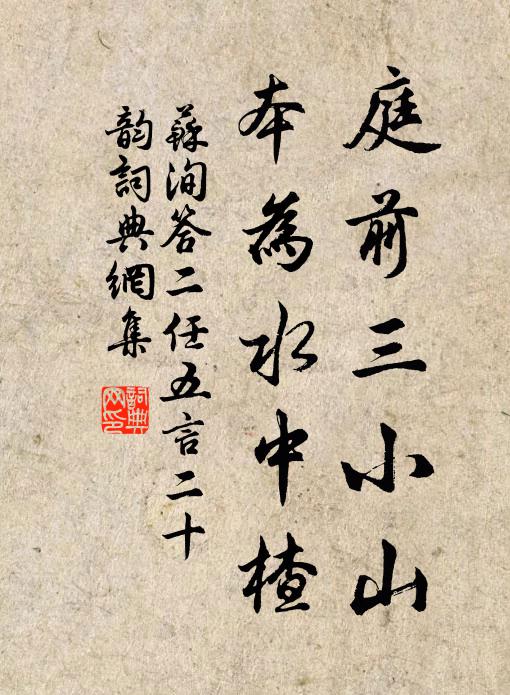 庭前三小山
本為水中楂
蘇洵答二任五言二十
韵詞典網集
詞典网印